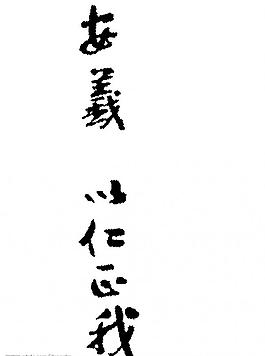 安義 以仁正我